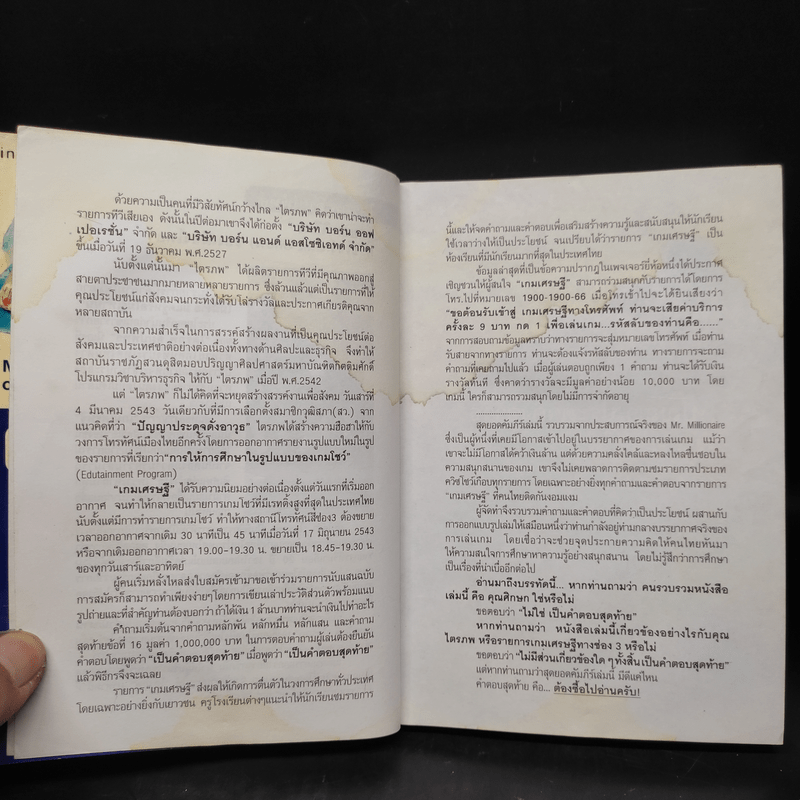 in
M
ด้วยความเป็นคนที่มีวิสัยทัศน์กว้างไกล "ไตรภพ" คิดว่าเขาน่าจะทำ
รายการทีวีเสียเอง ดังนั้นในปีต่อมาเขาจึงได้ก่อตั้ง "บริษัท บอร์น ออฟ
เปอเรชั่น" จำกัด และ "บริษัท บอร์น แอนด์ แอสโซซิเอทด์ จำกัด"
ขึ้นเมื่อวันที่ 19 ธันวาคม พ.ศ.2527
นับตั้งแต่นั้นมา "ไตรภพ" ได้ผลิตรายการทีวีที่มีคุณภาพออกสู่
สายตาประชาชนมากมายหลายหลายรายการ ซึ่งล้วนแล้วแต่เป็นรายการที่ให้
คุณประโยชน์แก่สังคมจนกระทั่งได้รับโล่รางวัลและประกาศเกียรติคุณจาก
หลายสถาบัน
จากความสำเร็จในการสรรค์สร้างผลงานที่เป็นคุณประโยชน์ต่อ
สังคมและประเทศชาติอย่างต่อเนื่องทั้งทางด้านศิลปะและธุรกิจ จึงทำให้
สถาบันราชภัฏสวนดุสิตมอบปริญญาศิลปศาสตร์มหาบัณฑิตกิตติมศักดิ์
โปรแกรมวิชาบริหารธุรกิจ ให้กับ "ไตรภพ" เมื่อปี พ.ศ.2542
แต่ "ไตรภพ" ก็ไม่ได้คิดที่จะหยุดสร้างสรรค์งานเพื่อสังคม วันเสาร์ที่
4 มีนาคม 2543 วันเดียวกับที่มีการเลือกตั้งสมาชิกวุฒิสภา(สว.) จาก
แนวคิดที่ว่า "ปัญญาประดุจดั่งอาวุธ" ไตรภพได้สร้างความฮือฮาให้กับ
วงการโทรทัศน์เมืองไทยอีกครั้งโดยการออกอากาศรายงานรูปแบบใหม่ในรูป
ของรายการที่เรียกว่า"การให้การศึกษาในรูปแบบของเกมโชว์"
(Edutainment Program)
"เกมเศรษฐี" ได้รับความนิยมอย่างต่อเนื่องตั้งแต่วันแรกที่เริ่มออก
อากาศ จนทำให้กลายเป็นรายการเกมโชว์ที่มีเรทติ้งสูงที่สุดในประเทศไทย
นับตั้งแต่มีการทำรายการเกมโชว์ ทำให้ทางสถานีโทรทัศน์สีช่อง3 ต้องขยาย
เวลาออกอากาศจากเดิม 30 นาทีเป็น 45 นาทีเมื่อวันที่ 17 มิถุนายน 2543
หรือจากเดิมออกอากาศเวลา 19.00-19.30 น. ขยายเป็น 18.45-19.30 น.
ของทุกวันเสาร์และอาทิตย์
ผู้คนเริ่มหลั่งไหลส่งใบสมัครเข้ามาขอเข้าร่วมรายการนับแสนฉบับ
การสมัครก็สามารถทำเพียงง่ายๆโดยการเขียนเล่าประวัติส่วนตัวพร้อมแนบ
รูปถ่ายและที่สำคัญท่านต้องบอกว่า ถ้าได้เงิน 1 ล้านบาทท่านจะนำเงินไปทำอะไร
คำถามเริ่มต้นจากคำถามหลักพัน หลักหมื่น หลักแสน และคำถาม
สุดท้ายข้อที่ 16 มูลค่า 1,000,000 บาท ในการตอบคำถามผู้เล่นต้องยืนยัน
คำตอบโดยพูดว่า "เป็นคำตอบสุดท้าย" เมื่อพูดว่า "เป็นคำตอบสุดท้าย"
แล้วพิธีการจึงจะเฉลย
รายการ "เกมเศรษฐี" ส่งผลให้เกิดการตื่นตัวในวงการศึกษาทั่วประเทศ
โดยเฉพาะอย่างยิ่งกับเยาวชน ครูโรงเรียนต่างๆแนะนำให้นักเรียนชมรายการ
นี้และให้จดคำถามและคำตอบเพื่อเสริมสร้างความรู้และสนับสนุนให้นักเรียน
ใช้เวลาว่างให้เป็นประโยชน์ จนเปรียบได้ว่ารายการ "เกมเศรษฐี" เป็น
ห้องเรียนที่มีนักเรียนมากที่สุดในประเทศไทย
ข้อมูลล่าสุดที่เป็นข้อความปรากฏในเพจเจอร์ยี่ห้อหนึ่งได้ประกาศ
เชิญชวนให้ผู้สนใจ "เกมเศรษฐี" สามารถร่วมสนุกกับรายการได้โดยการ
โทร.ไปที่หมายเลข 1900-1900-66 เมื่อโทรเข้าไปจะได้ยินเสียงว่า
"ขอต้อนรับเข้าสู่ เกมเศรษฐีทางโทรศัพท์ ท่านจะเสียค่าบริการ
ครั้งละ 9 บาท กด 1 เพื่อเล่นเกม...รหัสลับของท่านคือ......"
จากการสอบถามข้อมูลทราบว่าทางรายการจะสุ่มหมายเลขโทรศัพท์ เมื่อท่าน
รับสายจากทางรายการ ท่านจะต้องแจ้งรหัสลับของท่าน ทางรายการจะถาม
คำถามที่เคยถามไปแล้ว เมื่อผู้เล่นตอบถูกเพียง 1 คำถาม ท่านจะได้รับเงิน
รางวัลทันที ซึ่งคาดว่ารางวัลจะมีมูลค่าอย่างน้อย 10,000 บาท โดย
เกมนี้ ใครก็สามารถร่วมสนุกโดยไม่มีการจำกัดอายุ
....................
สุดยอดคัมภีร์เล่มนี้ รวบรวมจากประสบการณ์จริงของ Mr. Millionaire
ซึ่งเป็นผู้หนึ่งที่เคยมีโอกาสเข้าไปอยู่ในบรรยากาศของการเล่นเกม แม้ว่า
เขาจะไม่มีโอกาสได้คว้าเงินล้าน แต่ด้วยความคลั่งไคล้และหลงใหลชื่นชอบใน
ความสนุกสนานของเกม เขาจึงไม่เคยพลาดการติดตามชมรายการประเภท
ควิซโชว์เกือบทุกรายการ โดยเฉพาะอย่างยิ่งทุกคำถามและคำตอบจากรายการ
"เกมเศรษฐี" ที่คนไทยติดกันงอมแงม
ผู้จัดทำจึงรวบรวมคำถามและคำตอบที่คิดว่าเป็นประโยชน์ ผสานกับ
การออกแบบรูปเล่มให้เสมือนหนึ่งว่าท่านกำลังอยู่ท่ามกลางบรรยากาศจริงของ
การเล่นเกม โดยเชื่อว่าจะช่วยจุดประกายความคิดให้คนไทยหันมา
ให้ความสนใจการศึกษาหาความรู้อย่างสนุกสนาน โดยไม่รู้สึกว่าการศึกษา
เป็นเรื่องที่น่าเบื่ออีกต่อไป
อ่านมาถึงบรรทัดนี้... หากท่านถามว่า คนรวบรวมหนังสือ
เล่มนี้ คือ คุณศิษฎก ใช่หรือไม่
ขอตอบว่า "ไม่ใช่ เป็นคำตอบสุดท้าย"
หากท่านถามว่า หนังสือเล่มนี้เกี่ยวข้องอย่างไรกับคุณ
ไตรภพ หรือรายการเกมเศรษฐีทางช่อง 3 หรือไม่
ขอตอบว่า "ไม่มีส่วนเกี่ยวข้องใด ๆทั้งสิ้นเป็นคำตอบสุดท้าย"
แต่หากท่านถามว่าสุดยอดคัมภีร์เล่มนี้ มีดีแค่ไหน
คำตอบสุดท้าย คือ... ต้องซื้อไปอ่านครับ!